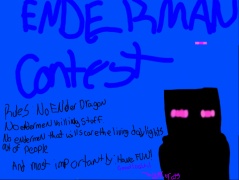 ENDERMAN
Contest
Rules No Ender Dragon
No enderman killing stuff
No enderman that will scare the living daylights
out of people
And most importantly Have FUN!!